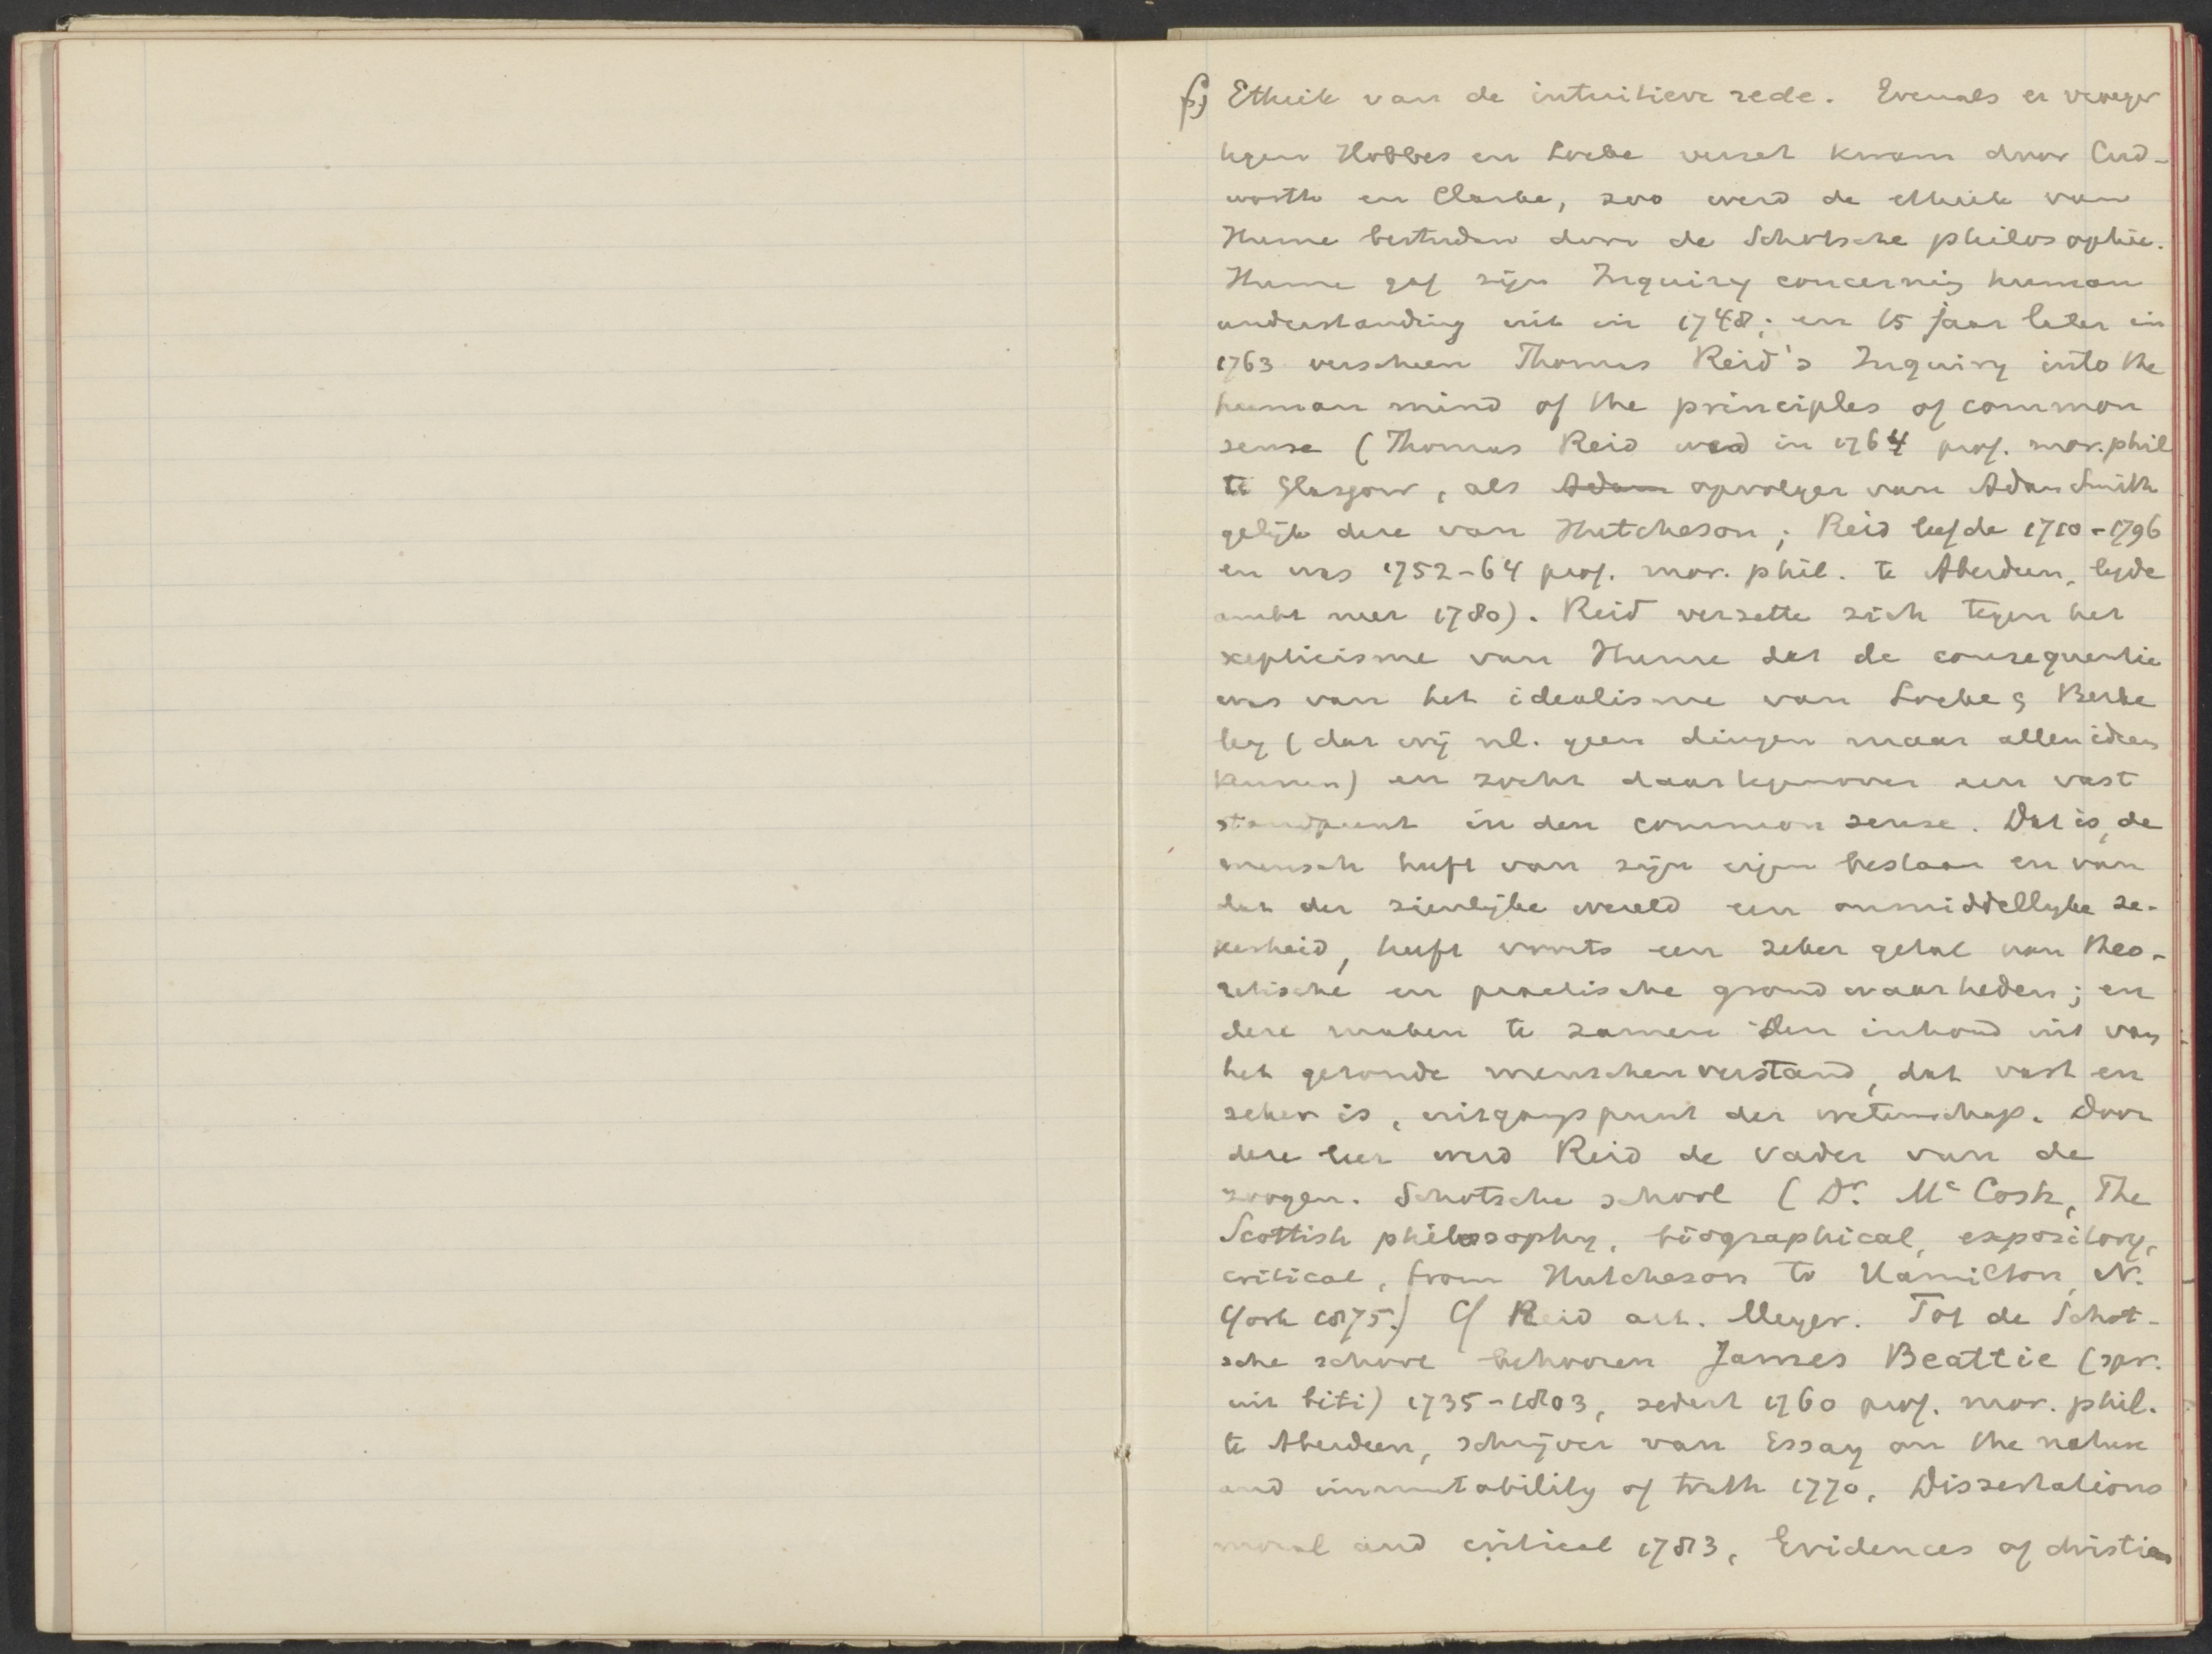 f) Ethiek van de intuitieve rede. Evenals er vroeger
tegen Hobbes en Locke verzet kwam door Cud-
worth en Clarke, zoo werd de ethiek van
Hume bestreden door de Schotsche philosophie.
Hume gaf zijn Inquiry concerning human
understanding uit in 1748; en 15 jaar later in
1763 verscheen Thomas Reid's Inquiry into the
human mind of the principles of common
sense (Thomas Reid werd in 1764 prof. mor. phil
te Glasgow, als Adam opvolger van Adam Smith
gelijk deze van Hutcheson; Reid leefde 1710-1796
en was 1752-64 prof. mor. phil. te Aberdeen, legde
ambt neer 1780). Reid verzette zich tegen het
scepticisme van Hume dat de consequentie
was van het idealisme van Locke & Berke
ley (dat wij nl. geen dingen maar alleen ideas
kennen) en zocht daartegenover een vast
standpunt in den common sense. Dat is, de
mensch heeft van zijn eigen bestaan en van
dat der zienlijke wereld een onmiddellijke ze-
kerheid, heeft voorts een zeker getal van theo-
retische en practische grondwaarheden; en
deze maken te zamen den inhoud uit van
het gezonde menschenverstand, dat vast en
zeker is, uitgangspunt der wetenschap. Door
deze leer werd Reid de vader van de
zoogen. Schotsche school (Dr. Mc Cosh, The
Scottish philosophy, biographical, expository,
critical, from Hutcheson to Hamilton, N.
York 1875.) Cf Reid art. Meyer. Tot de Schot-
sche school behooren James Beattie (spr.
uit biti) 1735-1803, sedert 1760 prof. mor. phil.
te Aberdeen, schrijver van Essay on the nature
and immutability of truth 1770, Dissertations
moral and critical 1783, Evidences of christian